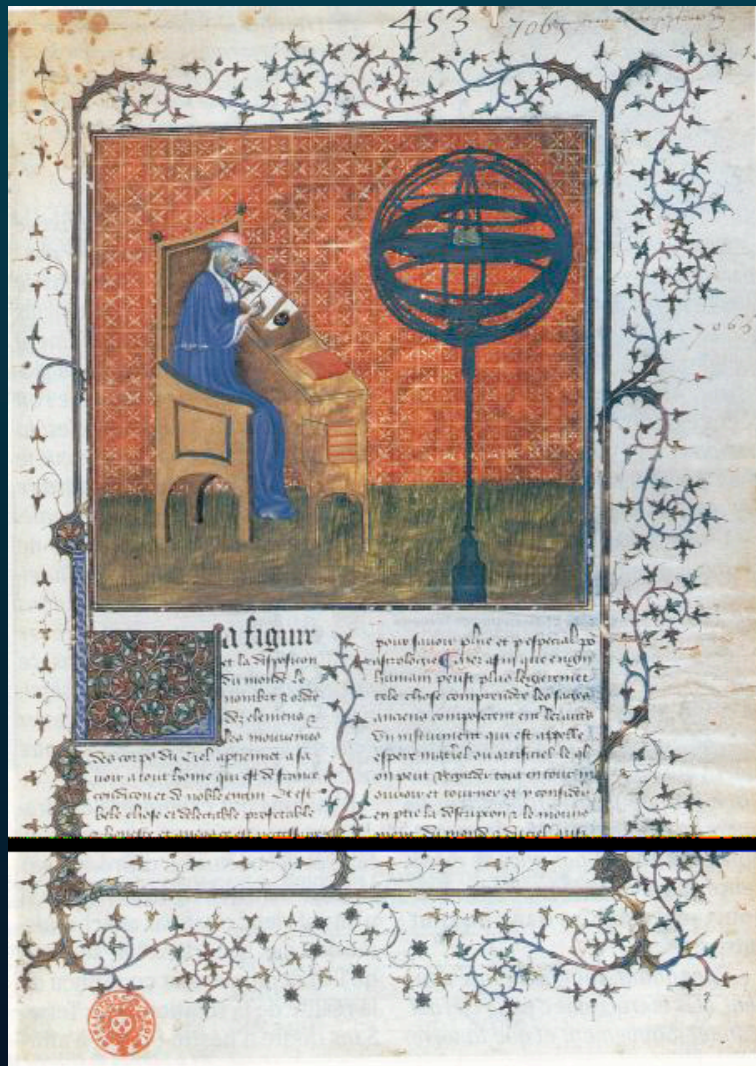 453
7065
7065
La figure
et la disposicion
du monde le
nombre & ordre
des elemens &
les mouvemens
des corps du ciel aptiennet a sa
uoir a tout home qui est de franche
condicion et de noble engin Et est
bele chose et delectable profetable
& honeste et
pour sauoir phie et p especial po
astrologie afin que engin
humain peust plus legierement
tele chose comprendre les sages
anciens composerent
Un instrument qui est appelle
espere materiel ou artificiel
on peut regarder tout en tour
mouuoir et tourner et y considerer
en ptie la descripcion & le mouue
ment du monde & du ciel